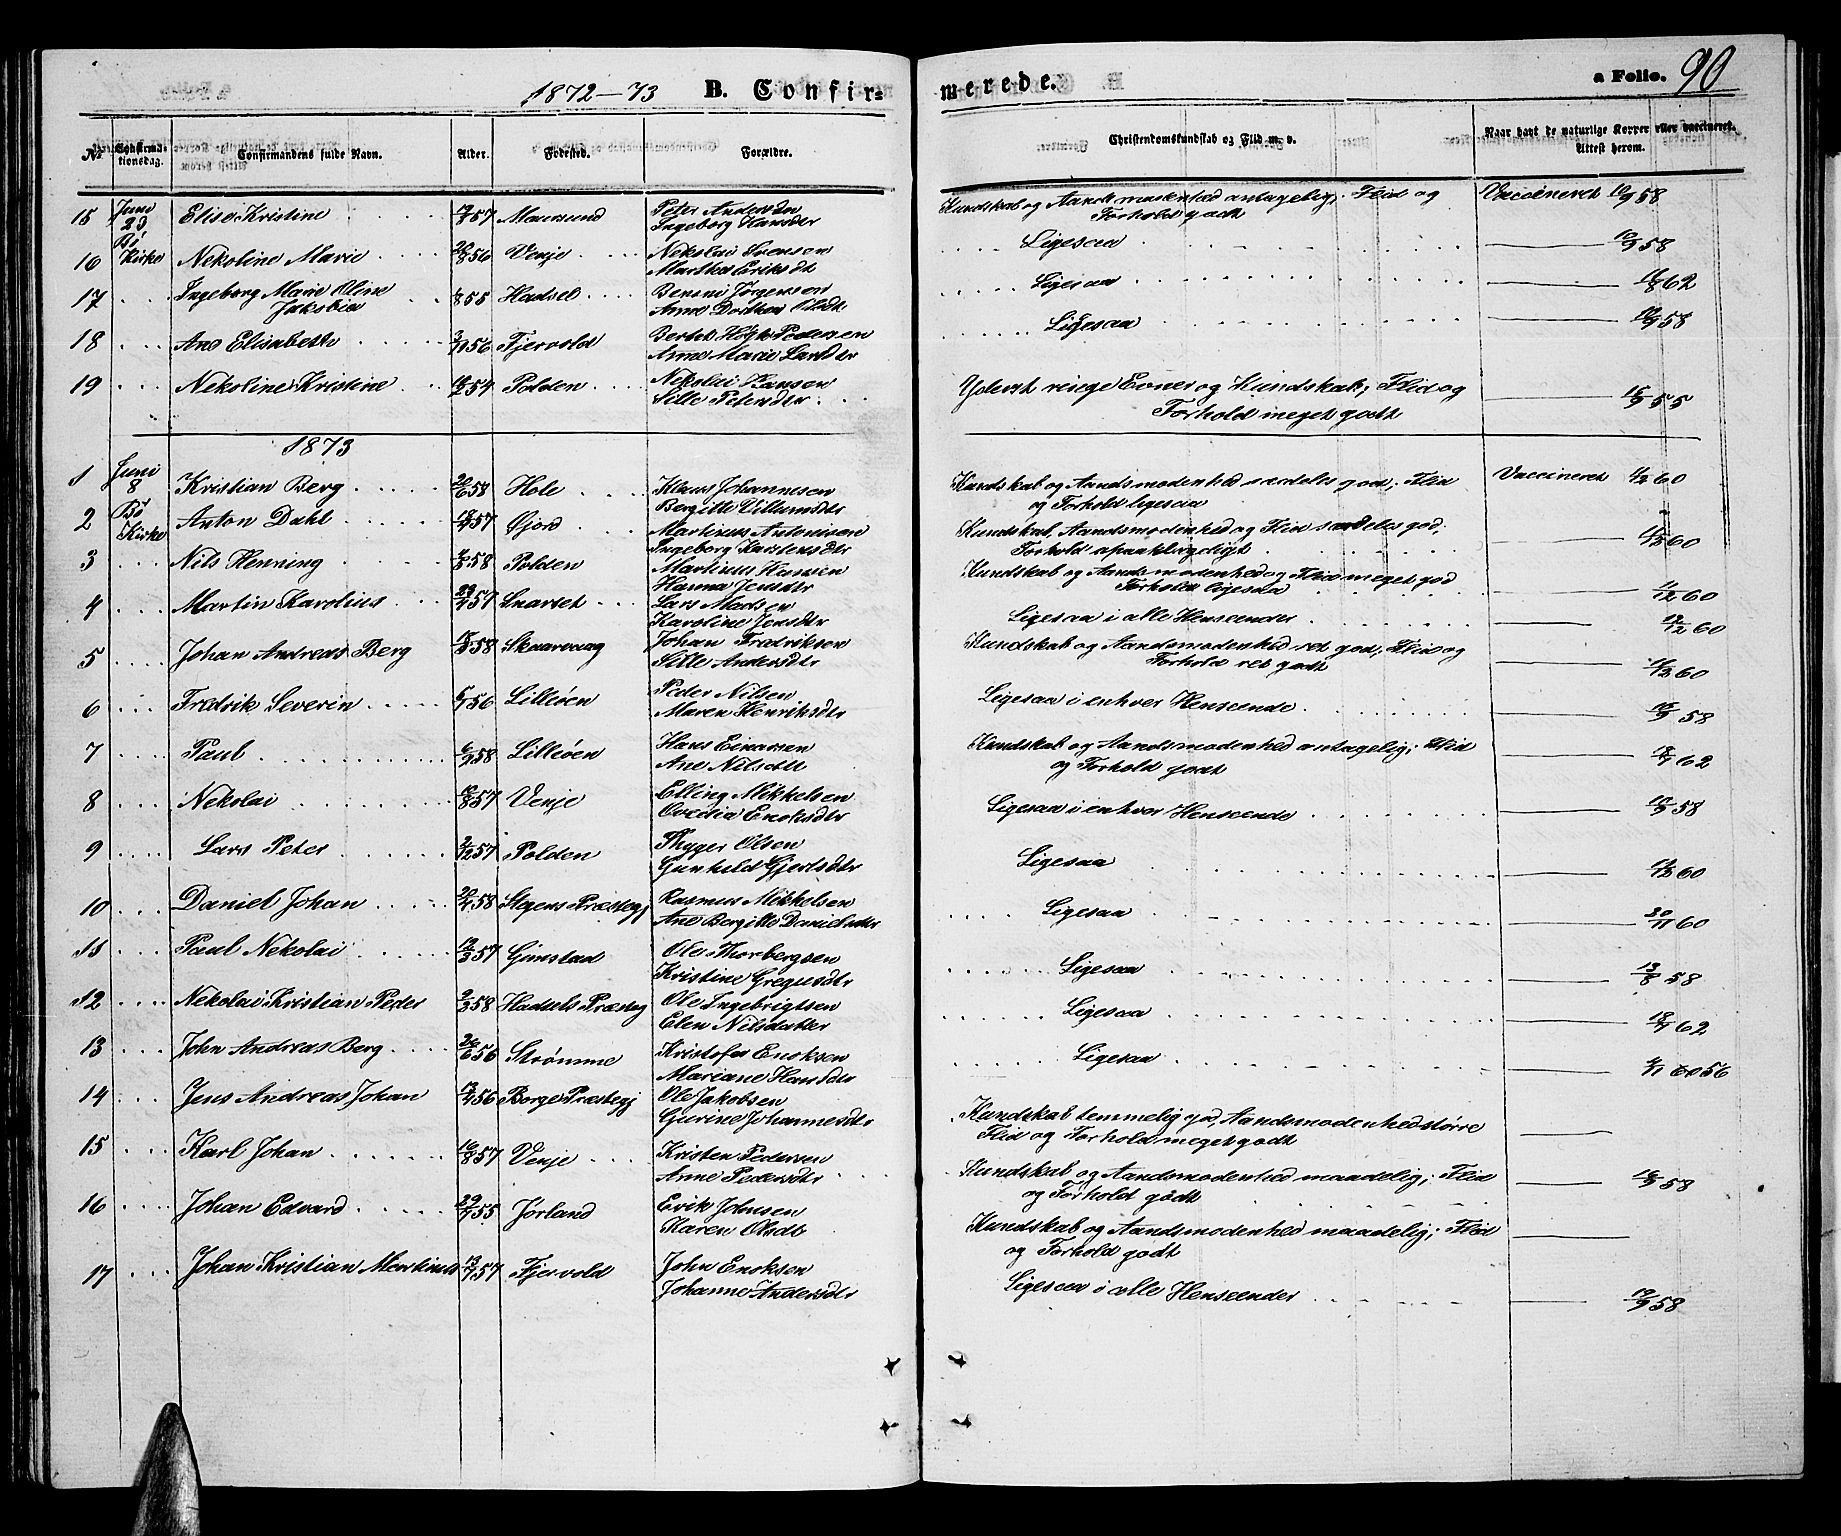 1872-73 B. Confir=
merede. a Folio. 90
No Confirmationsdag. Confirmandens fulde Navn. Alder. Fødested. Forældre.
Christendomskundskab og Flid m. v. Naar havt de naturlige Kopper eller vaccineret. Attest herom.
15 Juni 23 Elise Kristine 57 Maursund Peter Andersen
Ingeborg Hansdtr Kundskab og Aandsmodenhed antagelig; Flid og
Forhold godt Vaccineret 10/9 58
16 Bø Kirke Nekoline Marie 56 Venje Nekolai Svensen
Martha Eriksdt Ligesaa 10/9 58
17 Ingeborg Marie Oline
Jaksbia 58 Hadsel Benoni Jørgensen
Anne Dorthea Olsdt Ligesaa 62
18 Ane Elisabeth 56 Fjervold Bertel Høgh Pedersen
Anne Marie Larsdtr Ligesaa 58
19 Nekoline Kristine 54 Polden Nekolai Hansen
Sille Petersdtr Yderst ringe Evner og Kundskab; Flid og
Forhold meget godt 55
1873
1 Juni 8 Kristian Berg 58 Hole Klaus Johannesen
Bergitte Villumsdtr Kundskab og Aandsmodenhed særdeles god; Flid
og Forhold ligesaa Vaccineret 60
2 Bø Kirke Anton Dahl 57 Gjord Martinus Antonisen
Ingeborg Karstensdtr Kundskab, Aandsmodenhed og Flid særdeles god,
Forhold upaaklageligt 60
3 Nils Henning 58 Polden Martinus Hansen
Hanna Jensdtr Kundskab og Aandsmodenhed og Flid meget god
Forhold ligesaa 1/12 60
4 Martin Karolius 57 Snarset Lars Madsen
Karoline Jensdtr Ligesaa i alle Henseender 60
5 Johan Andreas Berg 58 Skaarvaag Johan Fredriksen
Sille Andersdtr Kundskab og Aandsmodenhed ret god; Flid og
Forhold ret godt 60
6 Fredrik Severin 56 Lilleøen Peder Nilsen
Maren Henriksdtr Ligesaa i enhver Henseende 58
7 Paul 58 Lilleøen Hans Einarsen
Ane Nilsdtt Kundskab og Aandsmodenhed antagelig; Flid
og Forhold godt 62
8 Nekolai 57 Venje Elling Mikkelsen
Cecilia Enoksdtr Ligesaa i enhver Henseende 58
9 Lars Peter 57 Polden Thyger Olsen
Gunhild Gjertsdtr Ligesaa 60
10 Daniel Johan 58 Stegens Præstegj Rasmus Mikkelsen
Ane Bergitte Danielsdtr Ligesaa 30/11 60
11 Paul Nekolai 57 Gimstad Ole Thorbergsen
Kristine Gregusdtr Ligesaa 13/8 58
12 Nekolai Kristian Peder 58 Hadsels Præsteg Ole Ingebrigtsen
Elen Nilsdatter Ligesaa 62
13 John Andreas Berg 26/6 56 Strømme Kristofer Enoksen
Mariane Hansdtr Ligesaa 56
14 Jens Andreas Johan 56 Borge Præstegj Ole Jakobsen
Gurine Johannesdtr Kundskab temmelig god, Aandsmodenhed større
Flid og Forhold meget godt
15 Karl Johan 57 Venje Kristen Pedersen
Anne Pedersdtr Kundskab og Aandsmodenhed maadelig; Flid
og Forhold godt 58
16 Johan Edvard 55 Jørland Erik Johnsen
Maren Olsdt Kundskab og Aandsmodenhed maadelig; Flid
og Forhold godt
17 Johan Kristian Martinus 57 Fjervold John Enoksen
Johanne Andersdtr Ligesaa i alle Henseender 58